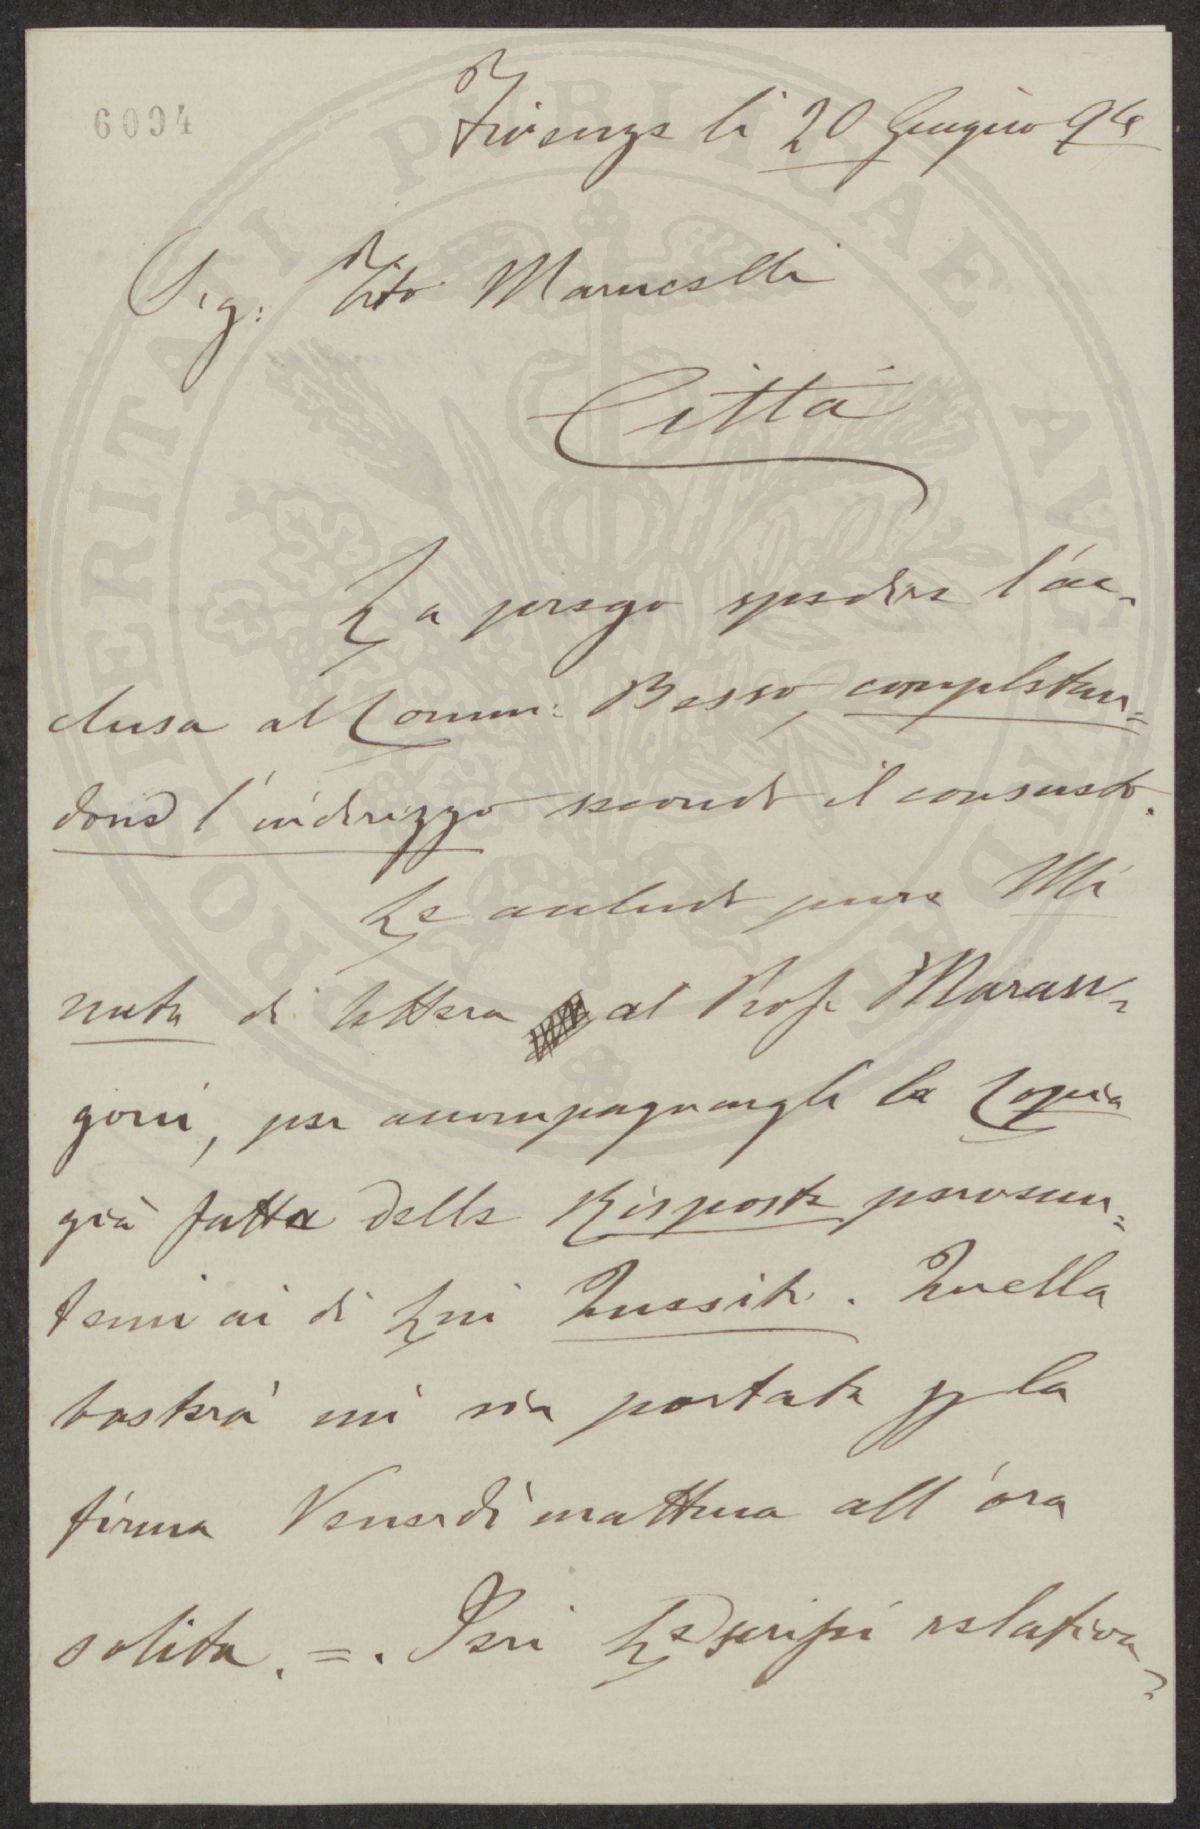 6094
Firenze li 20 Giugno 94
Sig: Tito Marucelli
Città
La prego spedire l'ac-
clusa al Comm: Besso, completan=
done l'indirizzo secondo il consueto.
Le accludo pure Mi
nuta di lettera al Prof. Maran-
goni, per accompagnargli la Copia
già fatta delle Risposte pervenu=
temi ai di Lui Quesiti. Quella
basterà mi sia portata p la
firma Venerdì mattina all'ora
solita. =. Ieri Le scrissi relativa-
PROSPERITATI PUBLICAE AVGENDAE